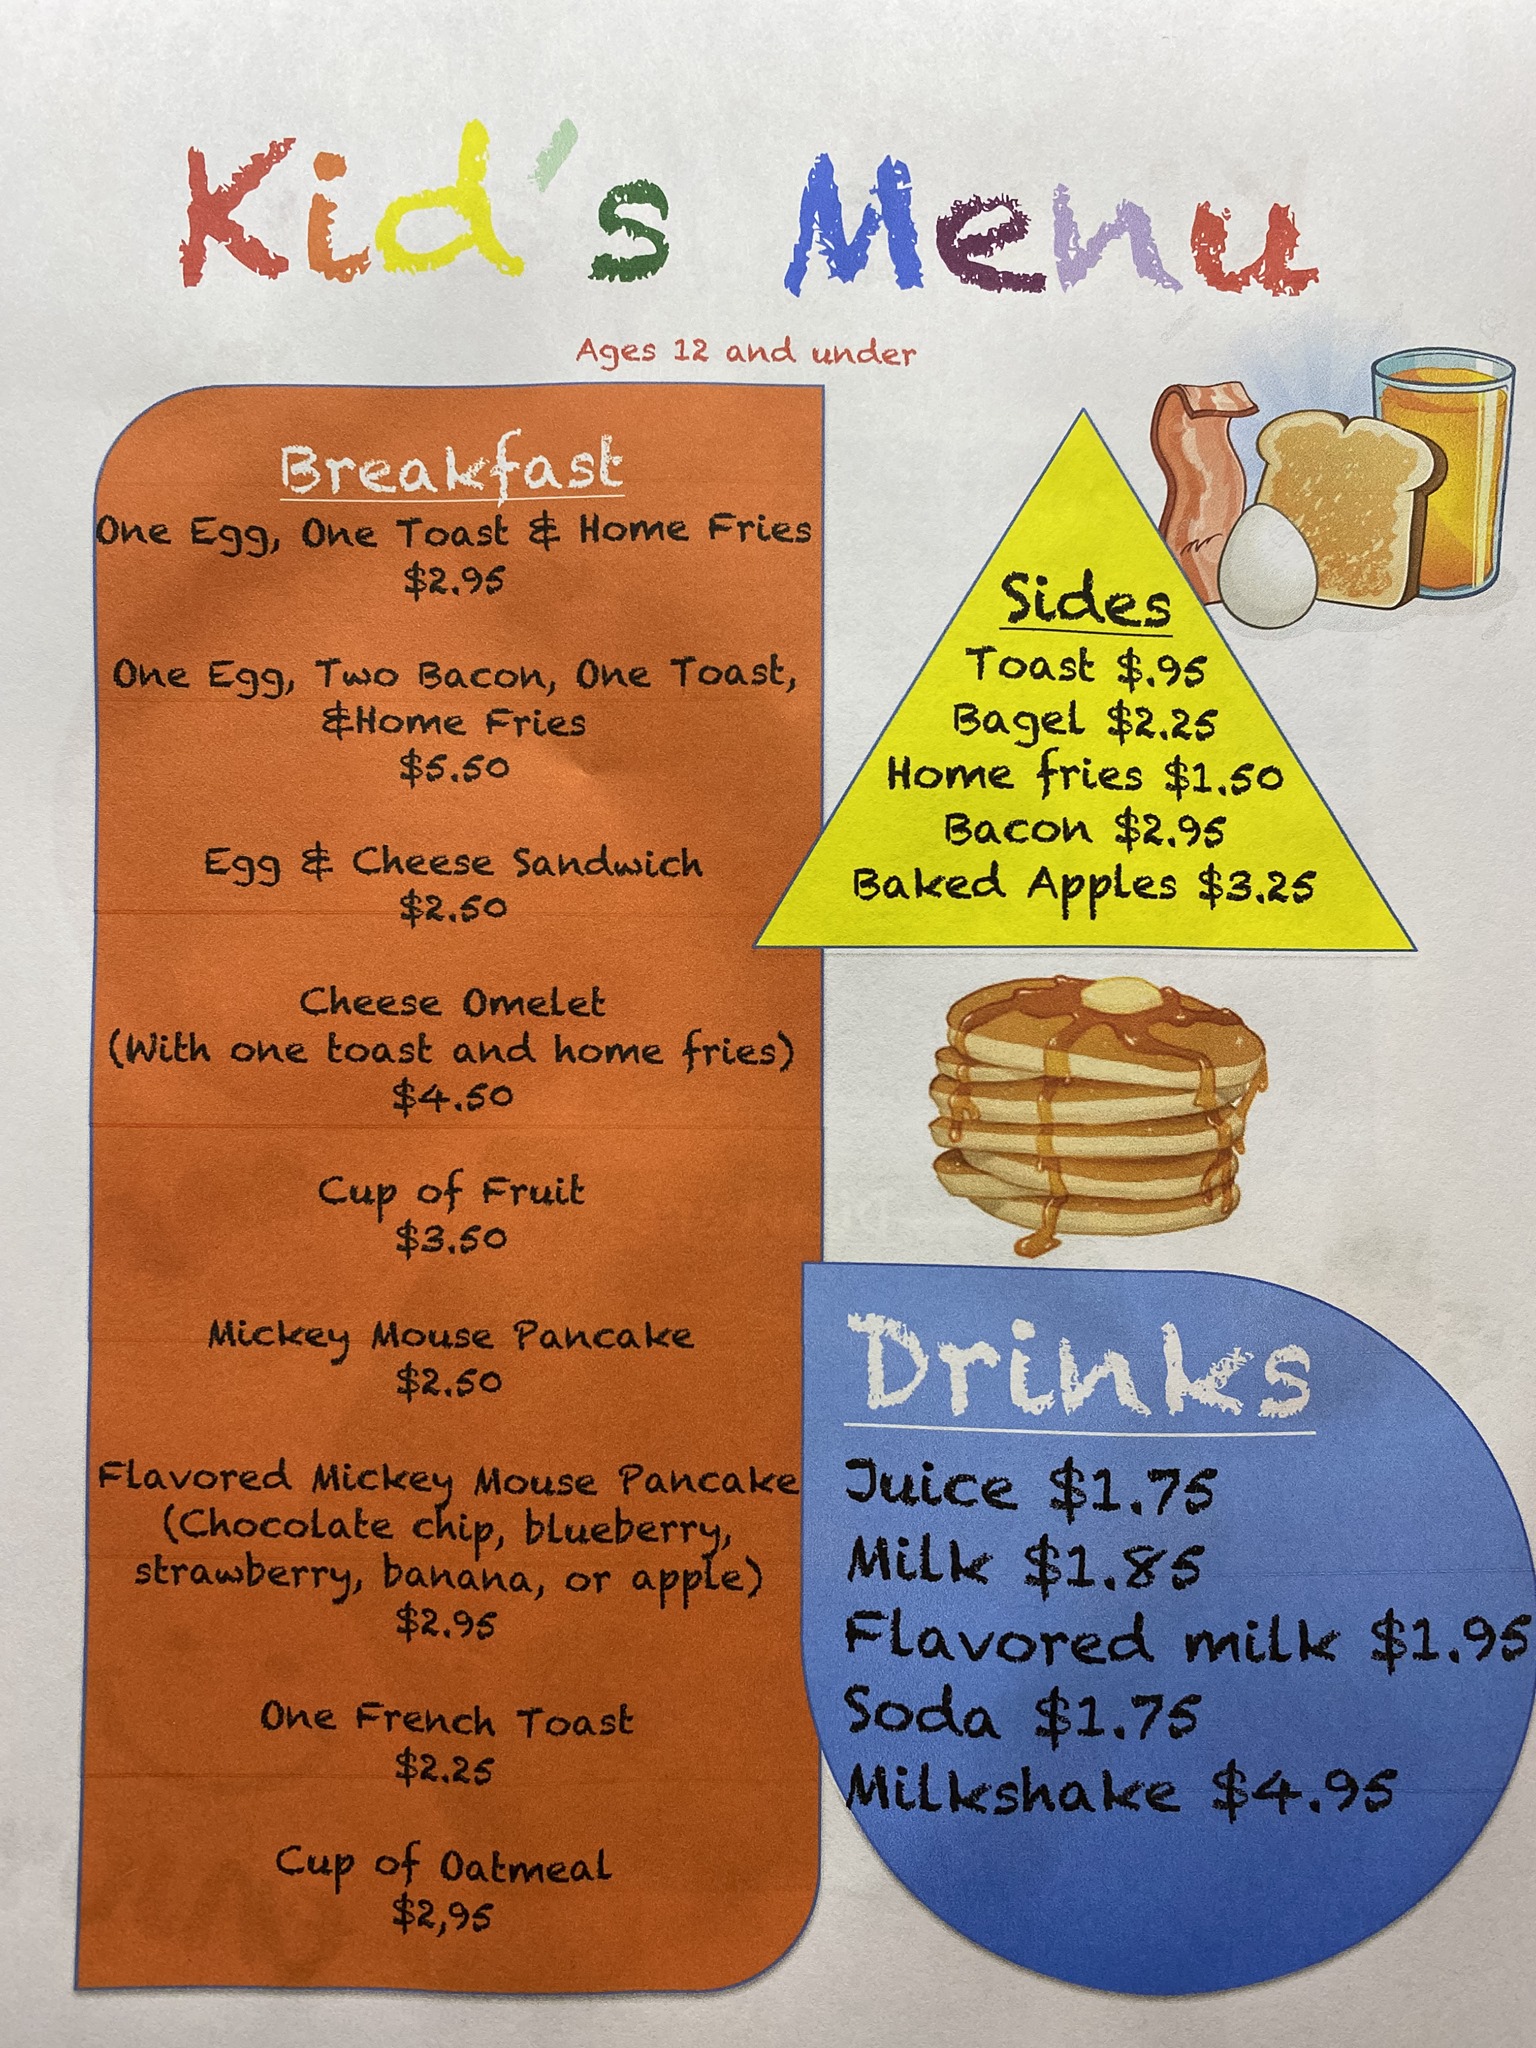 Kid's Menu
Ages 12 and under
Breakfast
One Egg, One Toast & Home Fries
$2.95
One Egg, Two Bacon, One Toast,
&Home Fries
$5.50
Egg & Cheese Sandwich
$2.50
Cheese Omelet
(With one toast and home fries)
$4.50
Cup of Fruit
$3.50
Mickey Mouse Pancake
$2.50
Flavored Mickey Mouse Pancake
(Chocolate chip, blueberry,
strawberry, banana, or apple)
$2.95
One French Toast
$2.25
Cup of Oatmeal
$2,95
Sides
Toast $.95
Bagel $2.25
Home fries $1.50
Bacon $2.95
Baked Apples $3.25
Drinks
Juice $1.75
Milk $1.85
Flavored milk $1.95
Soda $1.75
Milkshake $4.95